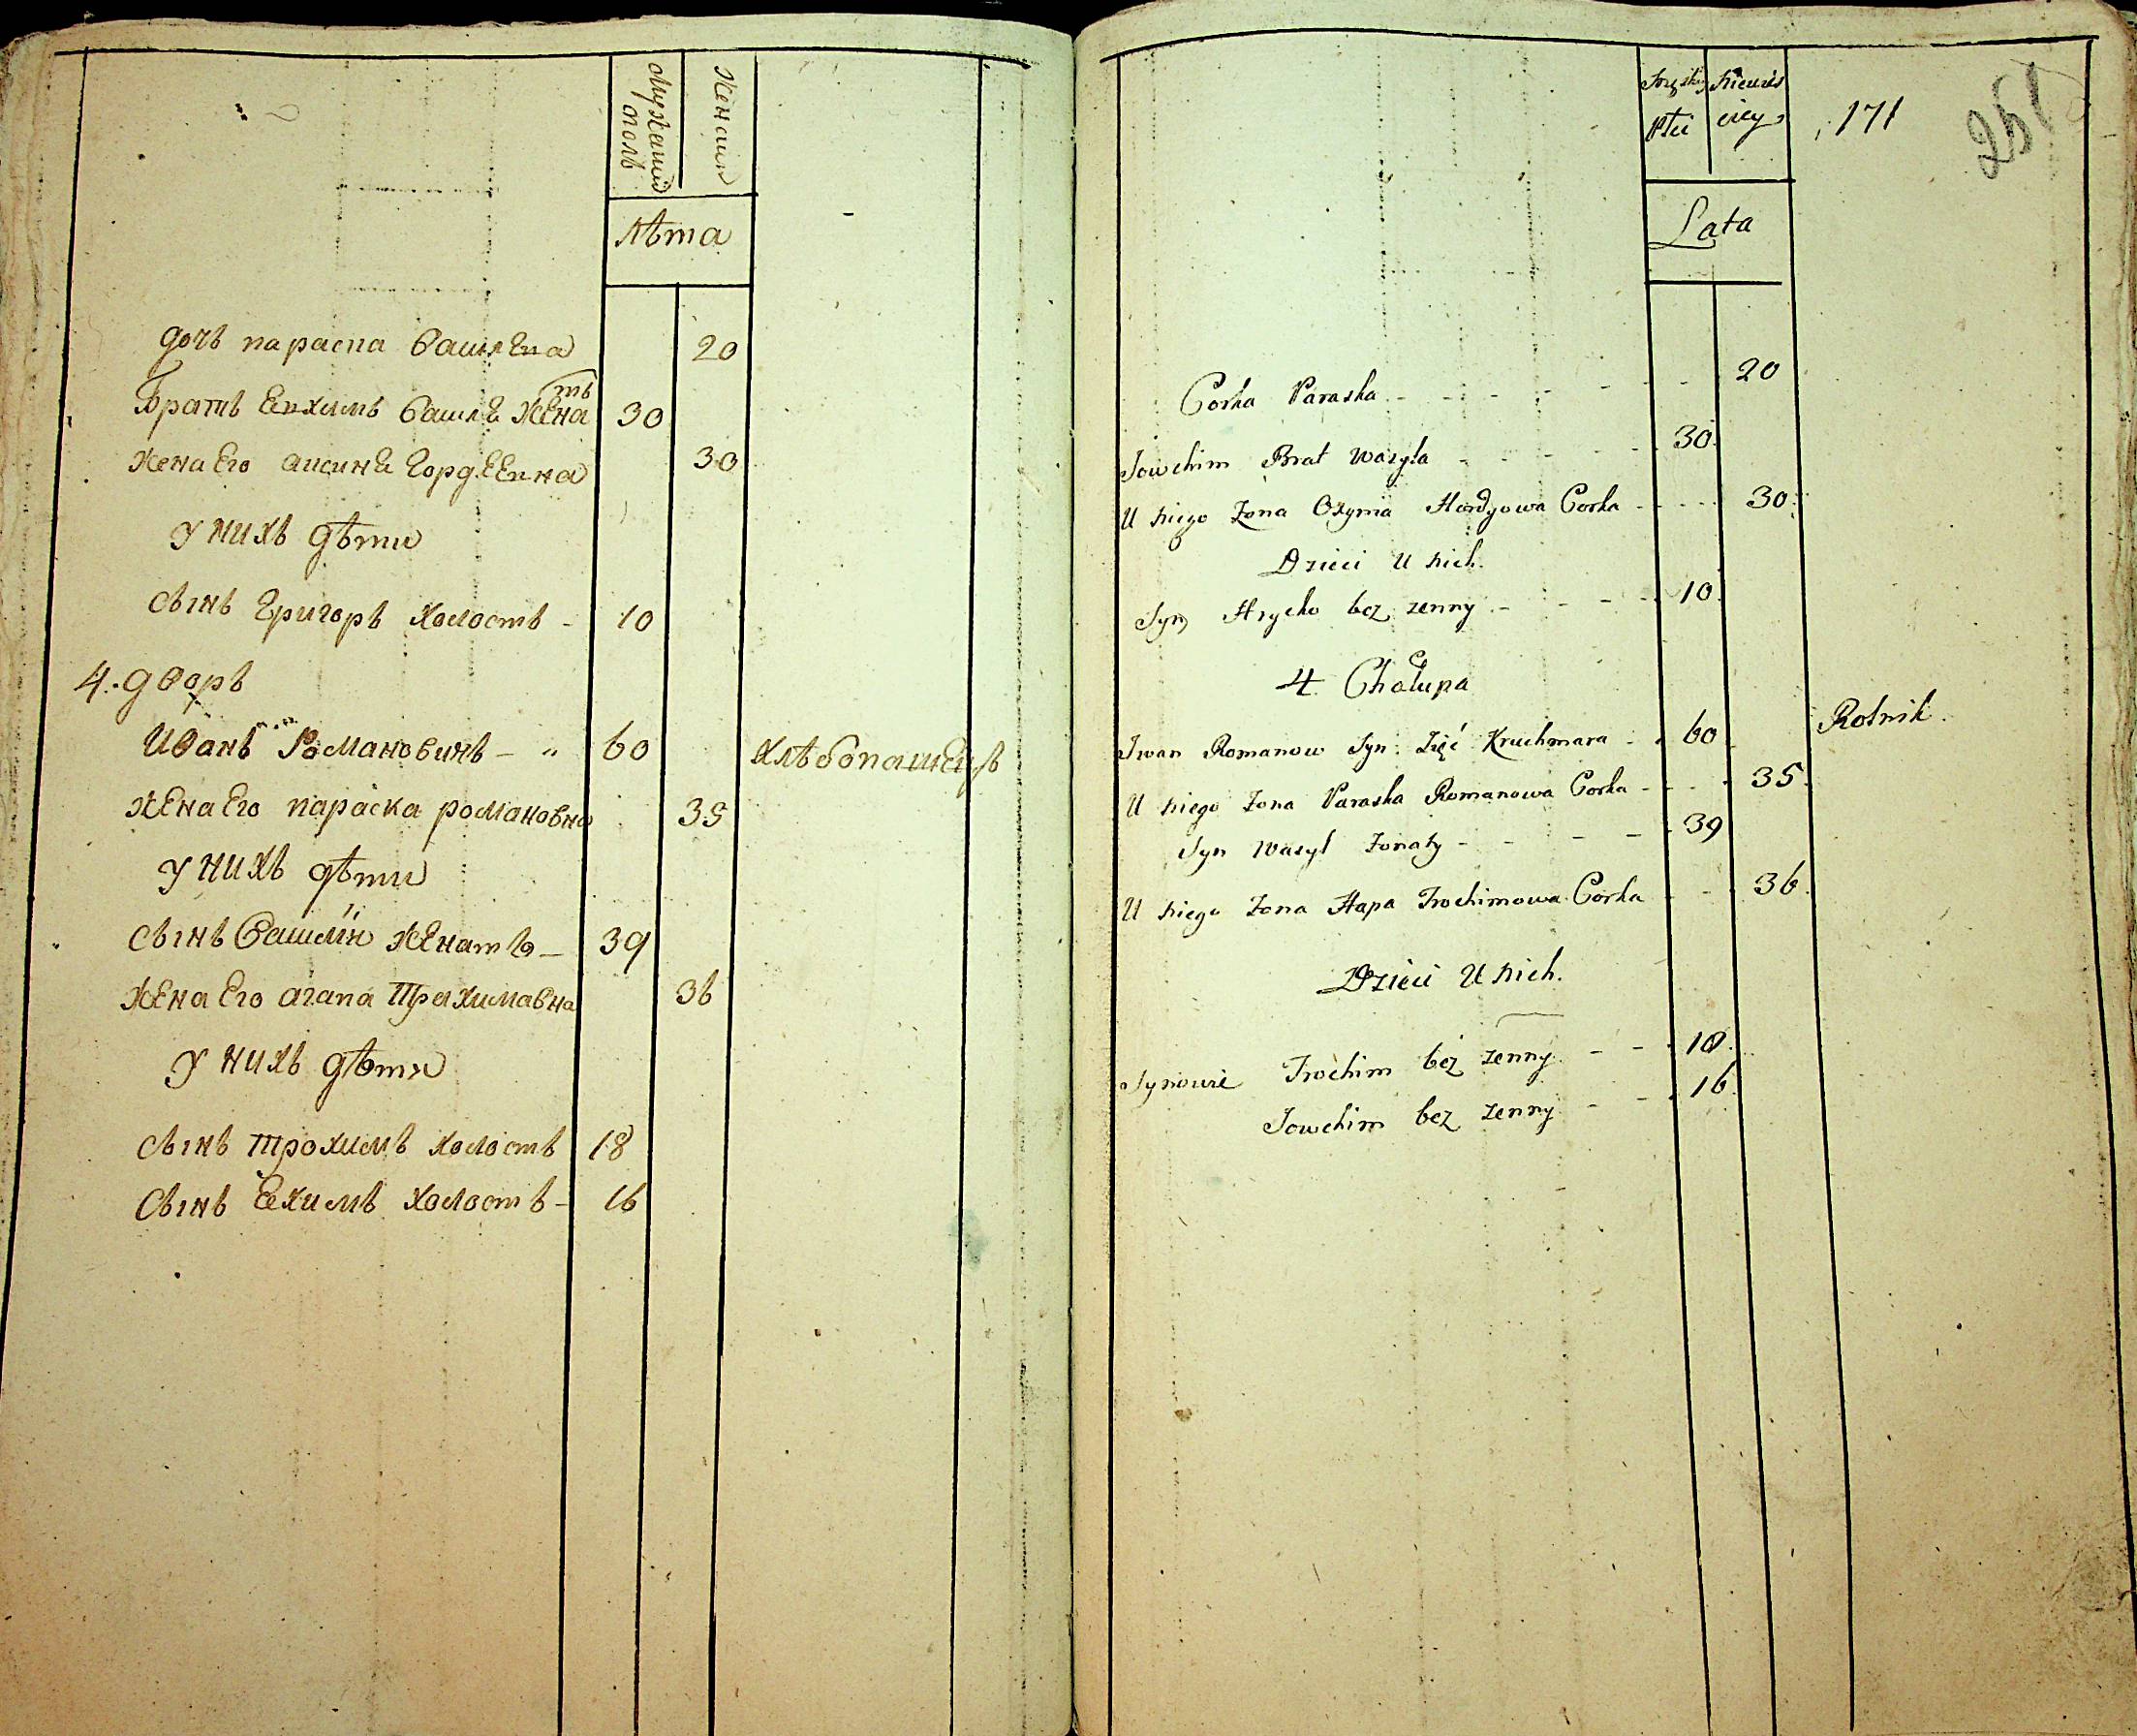 Мужеский полъ
Женский
Лѣта
дочъ параска василева 20
Братъ Евхимъ василя женатъ 30
жена Его аксиня Гордѣевна 30
у нихъ дѣти
сынъ Григоръ холостъ - 10
4. дворъ
Иванъ Романовичъ - " 60 хлѣбопашецъ
жена Его параска романовна 35
у нихъ дѣти
сынъ василий женатъ - 39
жена Его агапа Трахимавна 36
у нихъ дѣти
сынъ трохимъ холостъ 18
сынъ Евхимъ холостъ - 16
171
251
Męskiey Płci
Lata
Corka Paraska - - - - - 20
Jowchim Brat Wasyla - - - - - 30
U niego Zona Oxymia Hordyowa Corka - - - - 30
Dzieci U nich.
Syn Hrycko bez zenny - - - - 10
4 Chałupa
Iwan Romanow Syn Zięć Kruchmara - 60 Rolnik
U niego Zona Paraska Romanowa Corka - - - 35
Syn Wasyl Zonaty - - - - - 39
U niego Zona Hapa Trochimowa Corka - - 36
Dzieci U nich.
Synowie Trochim bez zenny - - 18
Jowchim bez zenny - - 16